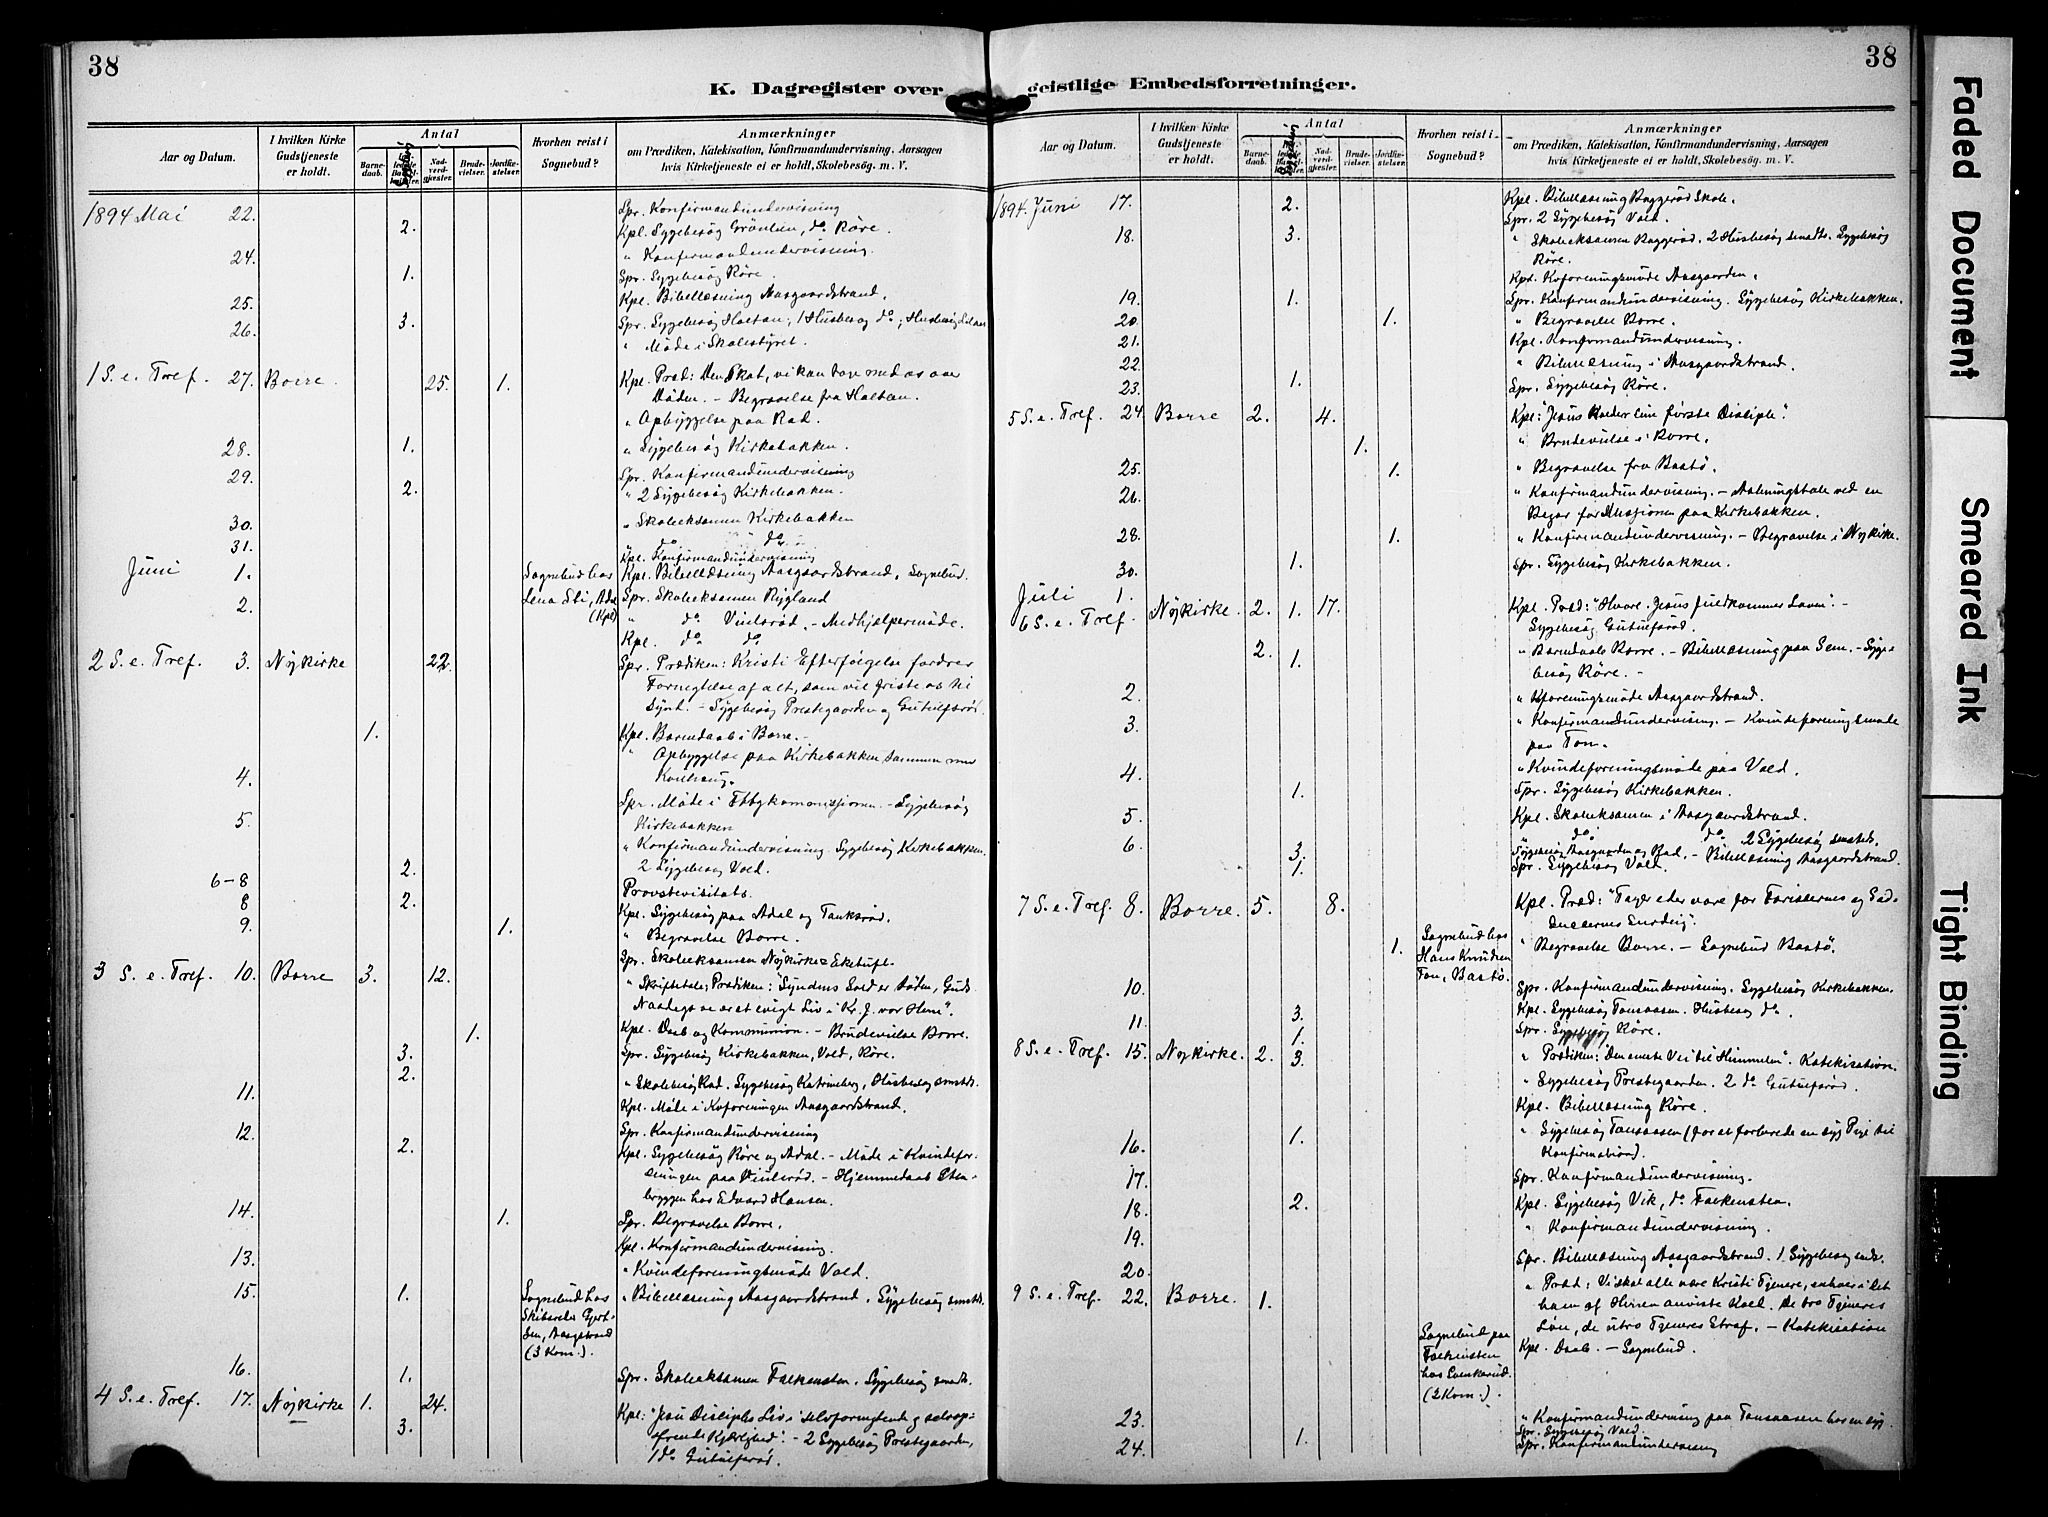 38
K. Dagregister over geistlige Embedsforretninger.
38
Aar og Datum.
I hvilken Kirke Gudstjeneste er holdt.
Antal
Barnedaab.
Sygebesøg
Nadverdgjester.
Brudevielser.
Jordfæstelser.
Hvorhen reist i Sognebud?
Anmærkninger
om Prædiken, Katekisation, Konfirmandundervisning, Aarsagen
hvis Kirketjeneste ei er holdt, Skolebesøg. m. V.
1894 Mai 22. Spr. Konfirmandundervisning
2. Kpl. Sygebesøg Grönlien, do Röre.
24. " Konfirmandundervisning.
1. Spr. Sygebesøg Röre.
25. Kpl. Bibellæsning Aasgaardstrand.
26. 3. Spr. Sygebesøg Holtan; 1 Husbesøg do; Husbesøg
" Möde i Skolestyret.
1 S. e. Tref. 27. Borre. 25. 1. Kpl. Præd: Den Skat, vi kan tage med os over
Döden. - Begravelse fra Holtan.
" Opbyggelse paa Rød.
28. 1. " Sygebesøg Kirkebakken.
29. Spr. Konfirmandundervisning
2. " 2 Sygebesøg Kirkebakken.
30. " Skoleeksamen Kirkebakken
31. " do do
Kpl. Konfirmandundervisning
Juni 1. Sognebud hos Kpl. Bibellæsning Aasgaardstrand. Sognebud.
2. Lena Eli, Adal (Kpl) Spr. Skoleeksamen Nygland
" do Viulsrød. - Medhjælpermöde.
Kpl. do do
2 S. e. Tref. 3. Nykirke 22. Spr. Prædiken: Kristi Efterfölgelse fordrer
Fornegtelse af alt, som vil friste os til
Synd. - Sygebesøg Prestegaarden og Gutulfsrød.
1. Kpl. Barnedaab i Borre. -
" Opbyggelse paa Kirkebakken sammen med
4.
Spr. Möde i - Sygebesøg
5. Kirkebakken
" Konfirmandundervisning. Sygebesøg Kirkebakken.
2. 2 Sygebesøg Vold.
6-8 Provstevisitats.
8 2. Kpl. Sygebesøg paa Adal og Tanksrød.
9. 1. " Begravelse Borre.
Spr. Skoleeksamen Nykirke - Eketuft.
3 S. e. Tref. 10. Borre 3. 12. " Skriftetale; Prædiken: "Syndens Sold er Döden, Guds
Naadegave er et evigt Liv i Kr. J. vor Herre".
1. Kpl. Daab og Kommunion. - Brudevielse Borre.
3. Spr. Sygebesøg Kirkebakken, Vold, Röre.
2. " Skolebesøg Rød. Sygebesøg Katrineberg, Husbesøg smstds.
11. Kpl. Möde i Kvforeningen Aasgaardstrand.
12. Spr. Konfirmandundervisning
2. Kpl. Sygebesøg Röre og Adal. - Möde i Kvindefor-
eningen paa Viulsrød. - Hjemmedaab Sten-
bryggen hos Edvard Hansen.
14. 1. Spr. Begravelse Borre.
13. Kpl. Konfirmandundervisning.
" Kvindeforeningsmöde Vold.
15. 1. Sognebud hos " Bibellæsning Aasgaardstrand. Sygebesøg smstds.
Skibsreder Gjert-
sen, Aasgstrand
(3 Kom.).
16. 1. Spr. Skoleeksamen Falkensten. Sygebesøg smstds.
4 S. e. Tref. 17. Nykirke 1. 24. Kpl: "Jesu Disciples Liv i selvfornegtende og selvop-
3. ofrende Kjærlighed". - 2 Sygebesøg Prestegaarden,
1 do Gutulfsrød.
Aar og Datum.
I hvilken Kirke Gudstjeneste er holdt.
Antal
Barnedaab.
Sygebesøg
Nadverdgjester.
Brudevielser.
Jordfæstelser.
Hvorhen reist i Sognebud?
Anmærkninger
om Prædiken, Katekisation, Konfirmandundervisning, Aarsagen
hvis Kirketjeneste ei er holdt, Skolebesøg. m. V.
1894. Juni 17. Kpl. Bibellæsning Baggerød Skole.
2. Spr. 2 Sygebesøg Vold.
18. 3. " Skoleeksamen Baggerød. 2 Husbesøg smstds. Sygebesøg
Röre.
Kpl. Kvforeningsmöde Aasgaarden.
19. 1. Spr. Konfirmandundervisning. Sygebesøg Kirkebakken.
20. 1. " Begravelse Borre.
21. Kpl. Konfirmandundervisning.
22. " Bibellæsning i Aasgaardstrand.
23. 1. Spr. Sygebesøg Röre.
5 S. e. Tref. 24. Borre 2. 4. Kpl: "Jesus kalder sine förste Disciple".
1. " Brudevielse i Borre.
25. 1. " Begravelse fra Bastö.
26. " Konfirmandundervisning. - Aabningstale ved en
Bazar for Missionen paa Kirkebakken.
28. 1. " Konfirmandundervisning. - Begravelse i Nykirke.
30. 1. Spr. Sygebesøg Kirkebakken.
Juli 1.
6 S. e. Tref. Nykirke. 2. 1. 17. Kpl. Præd: "Hvore. Jesus fuldkommer Loven". -
Sygebesøg Gutulfsrød.
2. 1. " Barnedaab Borre. - Bibellæsning paa Sem. - Syge-
besøg Röre. -
2. " Kvforeningsmöde Aasgaardstrand.
3. " Konfirmandundervisning. - Kvindeforeningsmøde
paa Ton.
4. " Kvindeforeningsmöde paa Vold.
1. Spr. Sygebesøg Kirkebakken.
5. Kpl. Skoleeksamen i Aasgaardstrand.
6. " do do 2 Sygebesøg smstds.
3. Sygebesøg Aasgaarden og Rød. - Bibellæsning Aasgaardstrand.
1. Spr. Sygebesøg Vold.
7 S. e. Tref. 8. Borre. 5. 8. Kpl. Præd: "Tager eder vare for Farisæernes og Sad-
ducæernes Surdeig".
1. Sognebud hos " Begravelse Borre. - Sognebud Bastö.
Hans Knudsen
Ton, Bastö.
10. Spr. Konfirmandundervisning. Sygebesøg Kirkebakken.
3. Kpl. Sygebesøg Tonsaasen. Husbesøg do.
11. 1. Spr. Sygebesøg Röre.
8 S. e. Tref. 15. Nykirke. 2. 3. " Prædiken: "Den eneste Vei til Himmelen". Katekisation.
" Sygebesøg Prestegaarden. 2 do Gutulfsrød.
Kpl. Bibellæsning Röre.
16. 1. " Sygebesøg Tonsaasen (for at forberede en syg Pige til
Konfirmation).
17. Spr. Konfirmandundervisning.
18. 2. Kpl. Sygebesøg Vik, do Falkensten.
19. " Konfirmandundervisning.
20. Spr. Bibellæsning Aasgaardstrand. 1 Sygebesøg smstds.
9 S. e. Tref. 22. Borre. 1. " Præd: Vi skal alle være Kristi Tjenere, enhver i det
ham af Herren anviste Kald. De tro Tjeneres
Lön, de utro Tjeneres Straf. - Katekisation
Sognebud paa Kpl. Daab. - Sognebud.
Falkensten
hos Svenkerud.
(2 Kom.).
23. " Konfirmandundervisning paa Tonsaasen hos en syg.
1. Spr. Sygebesøg Vold.
24. Spr. Konfirmandundervisning
Faded Document
Smeared Ink
Tight Binding